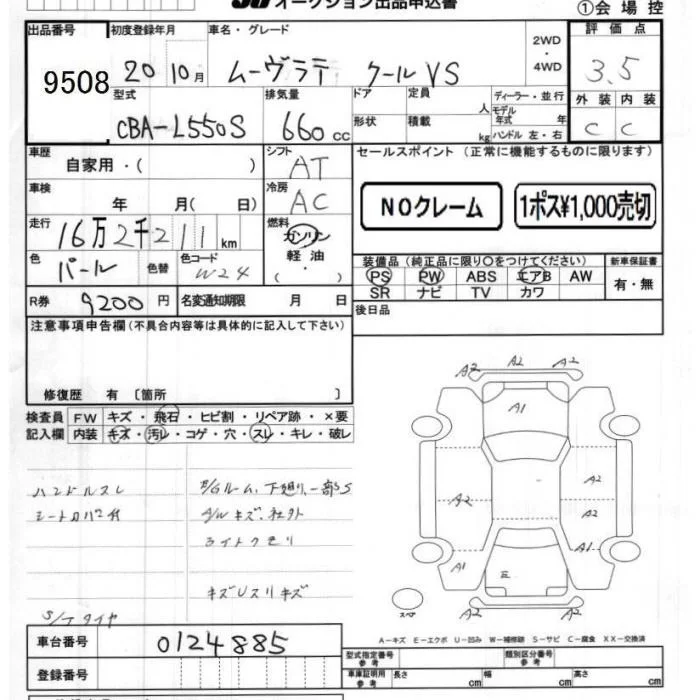 オークション出品申込書
①会場控
出品番号 初度登録年月 車名・グレード 2WD・4WD 評価点
9508 20 10月 ムーヴラテ クールVS 3.5
型式 排気量 ドア 定員 人 ディーラー・並行 外装 内装
CBA-L550S 660cc 形状 積載 kg モデル年式 年 ハンドル 左・右 C C
車歴 自家用・( ) シフト AT セールスポイント (正常に機能するものに限ります)
車検 年 月( 日) 冷房 AC NOクレーム 1ポス¥1,000売切
走行 16万2千211km 燃料 ガソリン 軽油 ( ・ )
色 パール 色替 色コード W24
装備品(純正品に限り○をつけてください) 新車保証書
PS PW ABS エアB AW 有・無
SR ナビ TV カワ
R券 9200円 名変通知期限 月 日 後日品
注意事項申告欄(不具合内容等は具体的に記入して下さい)
修復歴 有 〔箇所 〕
検査員 FW キズ・飛石・ヒビ割・リペア跡・×要
記入欄 内装 キズ・汚レ・コゲ・穴・スレ・キレ・破レ
ハンドルスレ
シートカバー付
E/Gルーム、下廻り、一部S
A/Wキズ、社外
ライトクモリ
キズUスリキズ
S/Tタイヤ
A2 A2 A2
A1
A2 A2
A2
A1 A1
A1 A2
スペア
A-キズ E-エクボ U-凹み W-補修跡 S-サビ C-腐食 XX-交換済
車台番号 0124885 型式指定番号 参考 類別区分番号 参考
登録番号 車庫証明用 参考 長さ cm 幅 cm 高さ cm